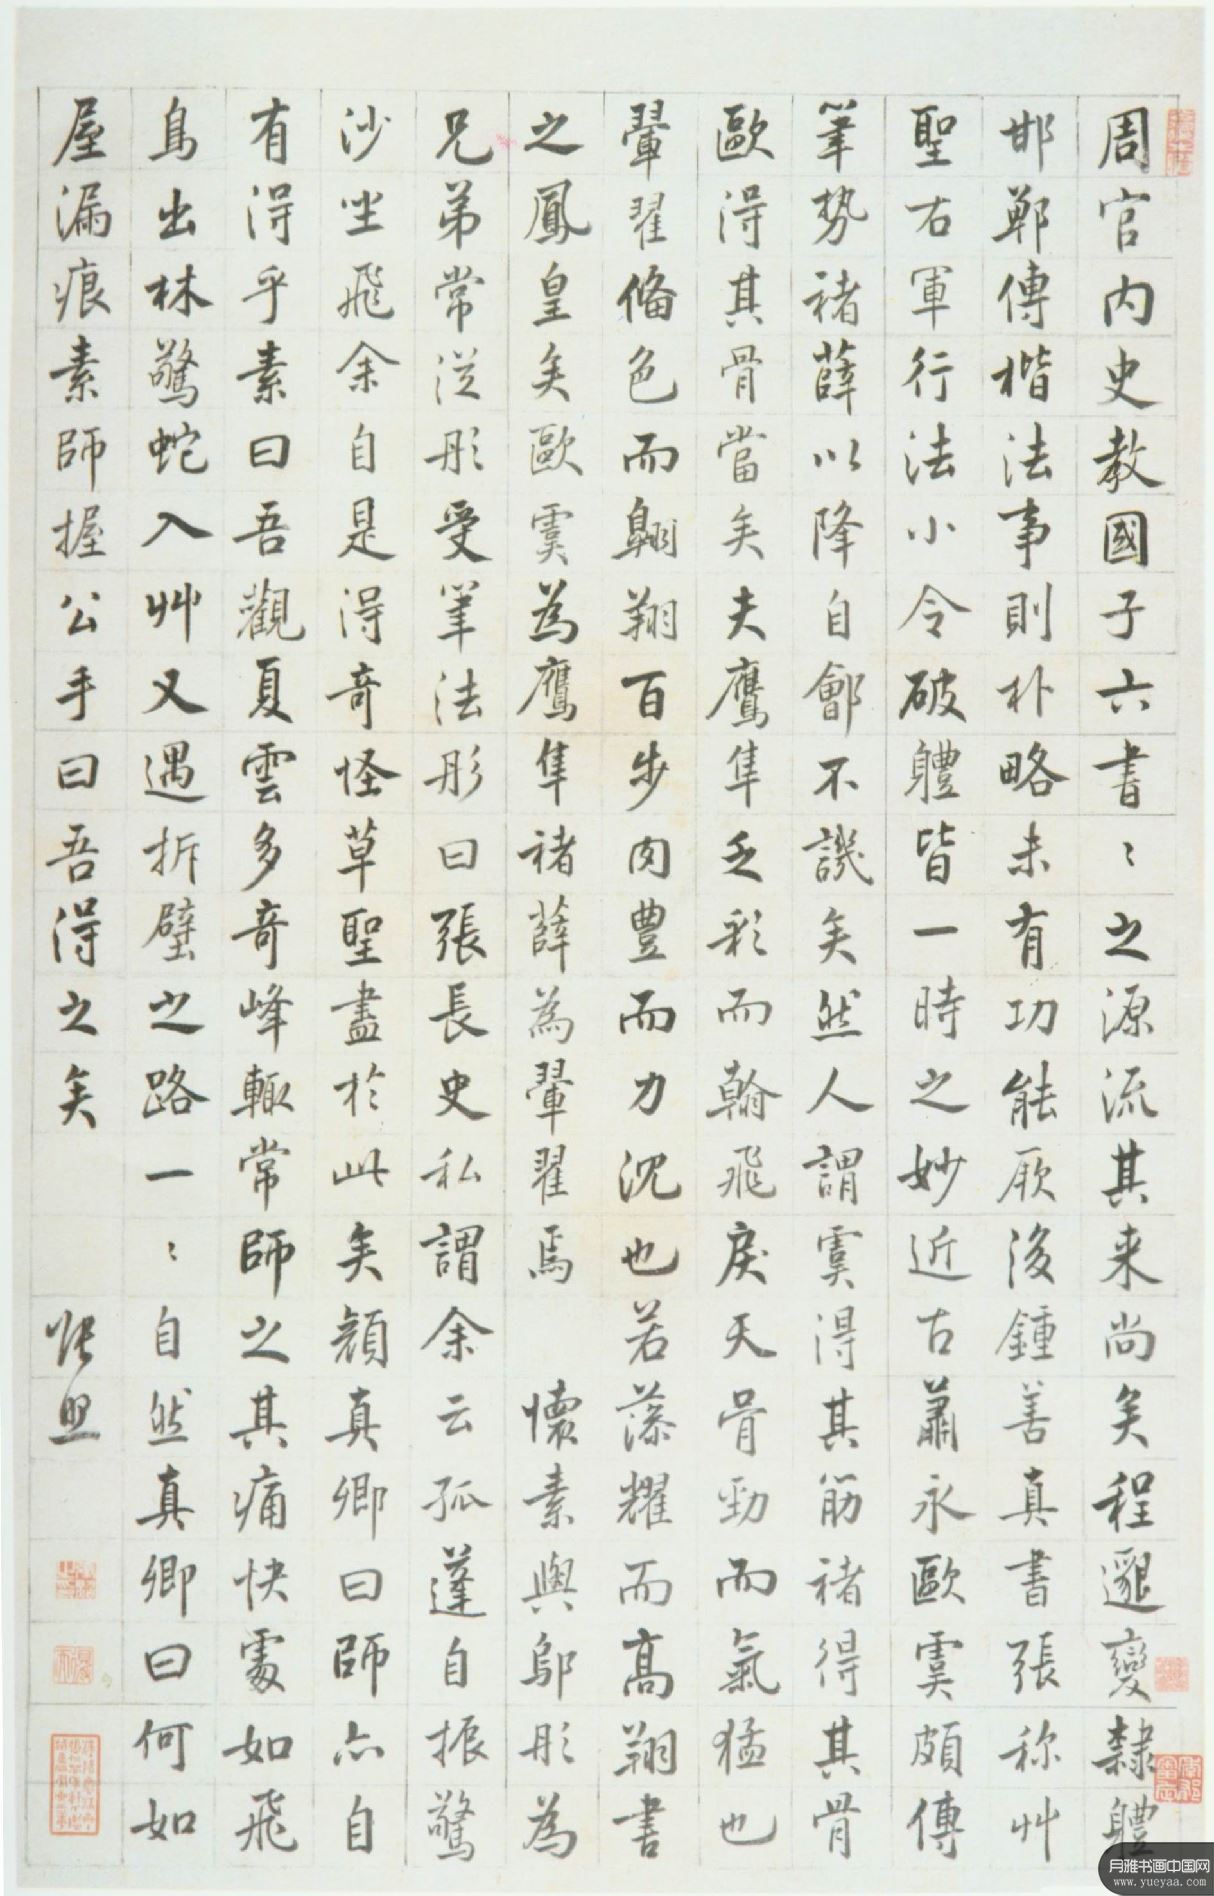 周官內史教國子六書〻之源流其来尚矣程邈變隸體
邯鄲傳楷法事則朴略未有功能厥後鍾善真書張称艸
聖右軍行法小令破體皆一時之妙近古蕭永歐虞頗傳
筆勢褚薛以降自鄶不譏矣然人謂虞得其筋褚得其骨
歐得其骨當矣夫鷹隼乏彩而翰飛戾天骨勁而氣猛也
翬翟俻色而翱翔百步肉豊而力沉也若藻耀而高翔書
之鳳皇矣歐虞為鷹隼褚薛為翬翟焉 懷素與鄔彤為
兄弟常從彤受筆法彤曰張長史私謂余云孤蓬自振驚
沙坐飛余自是得奇怪草聖盡於此矣顔真卿曰師亦自
有得乎素曰吾觀夏雲多奇峰輒常師之其痛快處如飛
鳥出林驚蛇入艸又遇拆壁之路一〻自然真卿曰何如
屋漏痕素師握公手曰吾得之矣 張照
月雅书画中国网
www.yueyaa.com